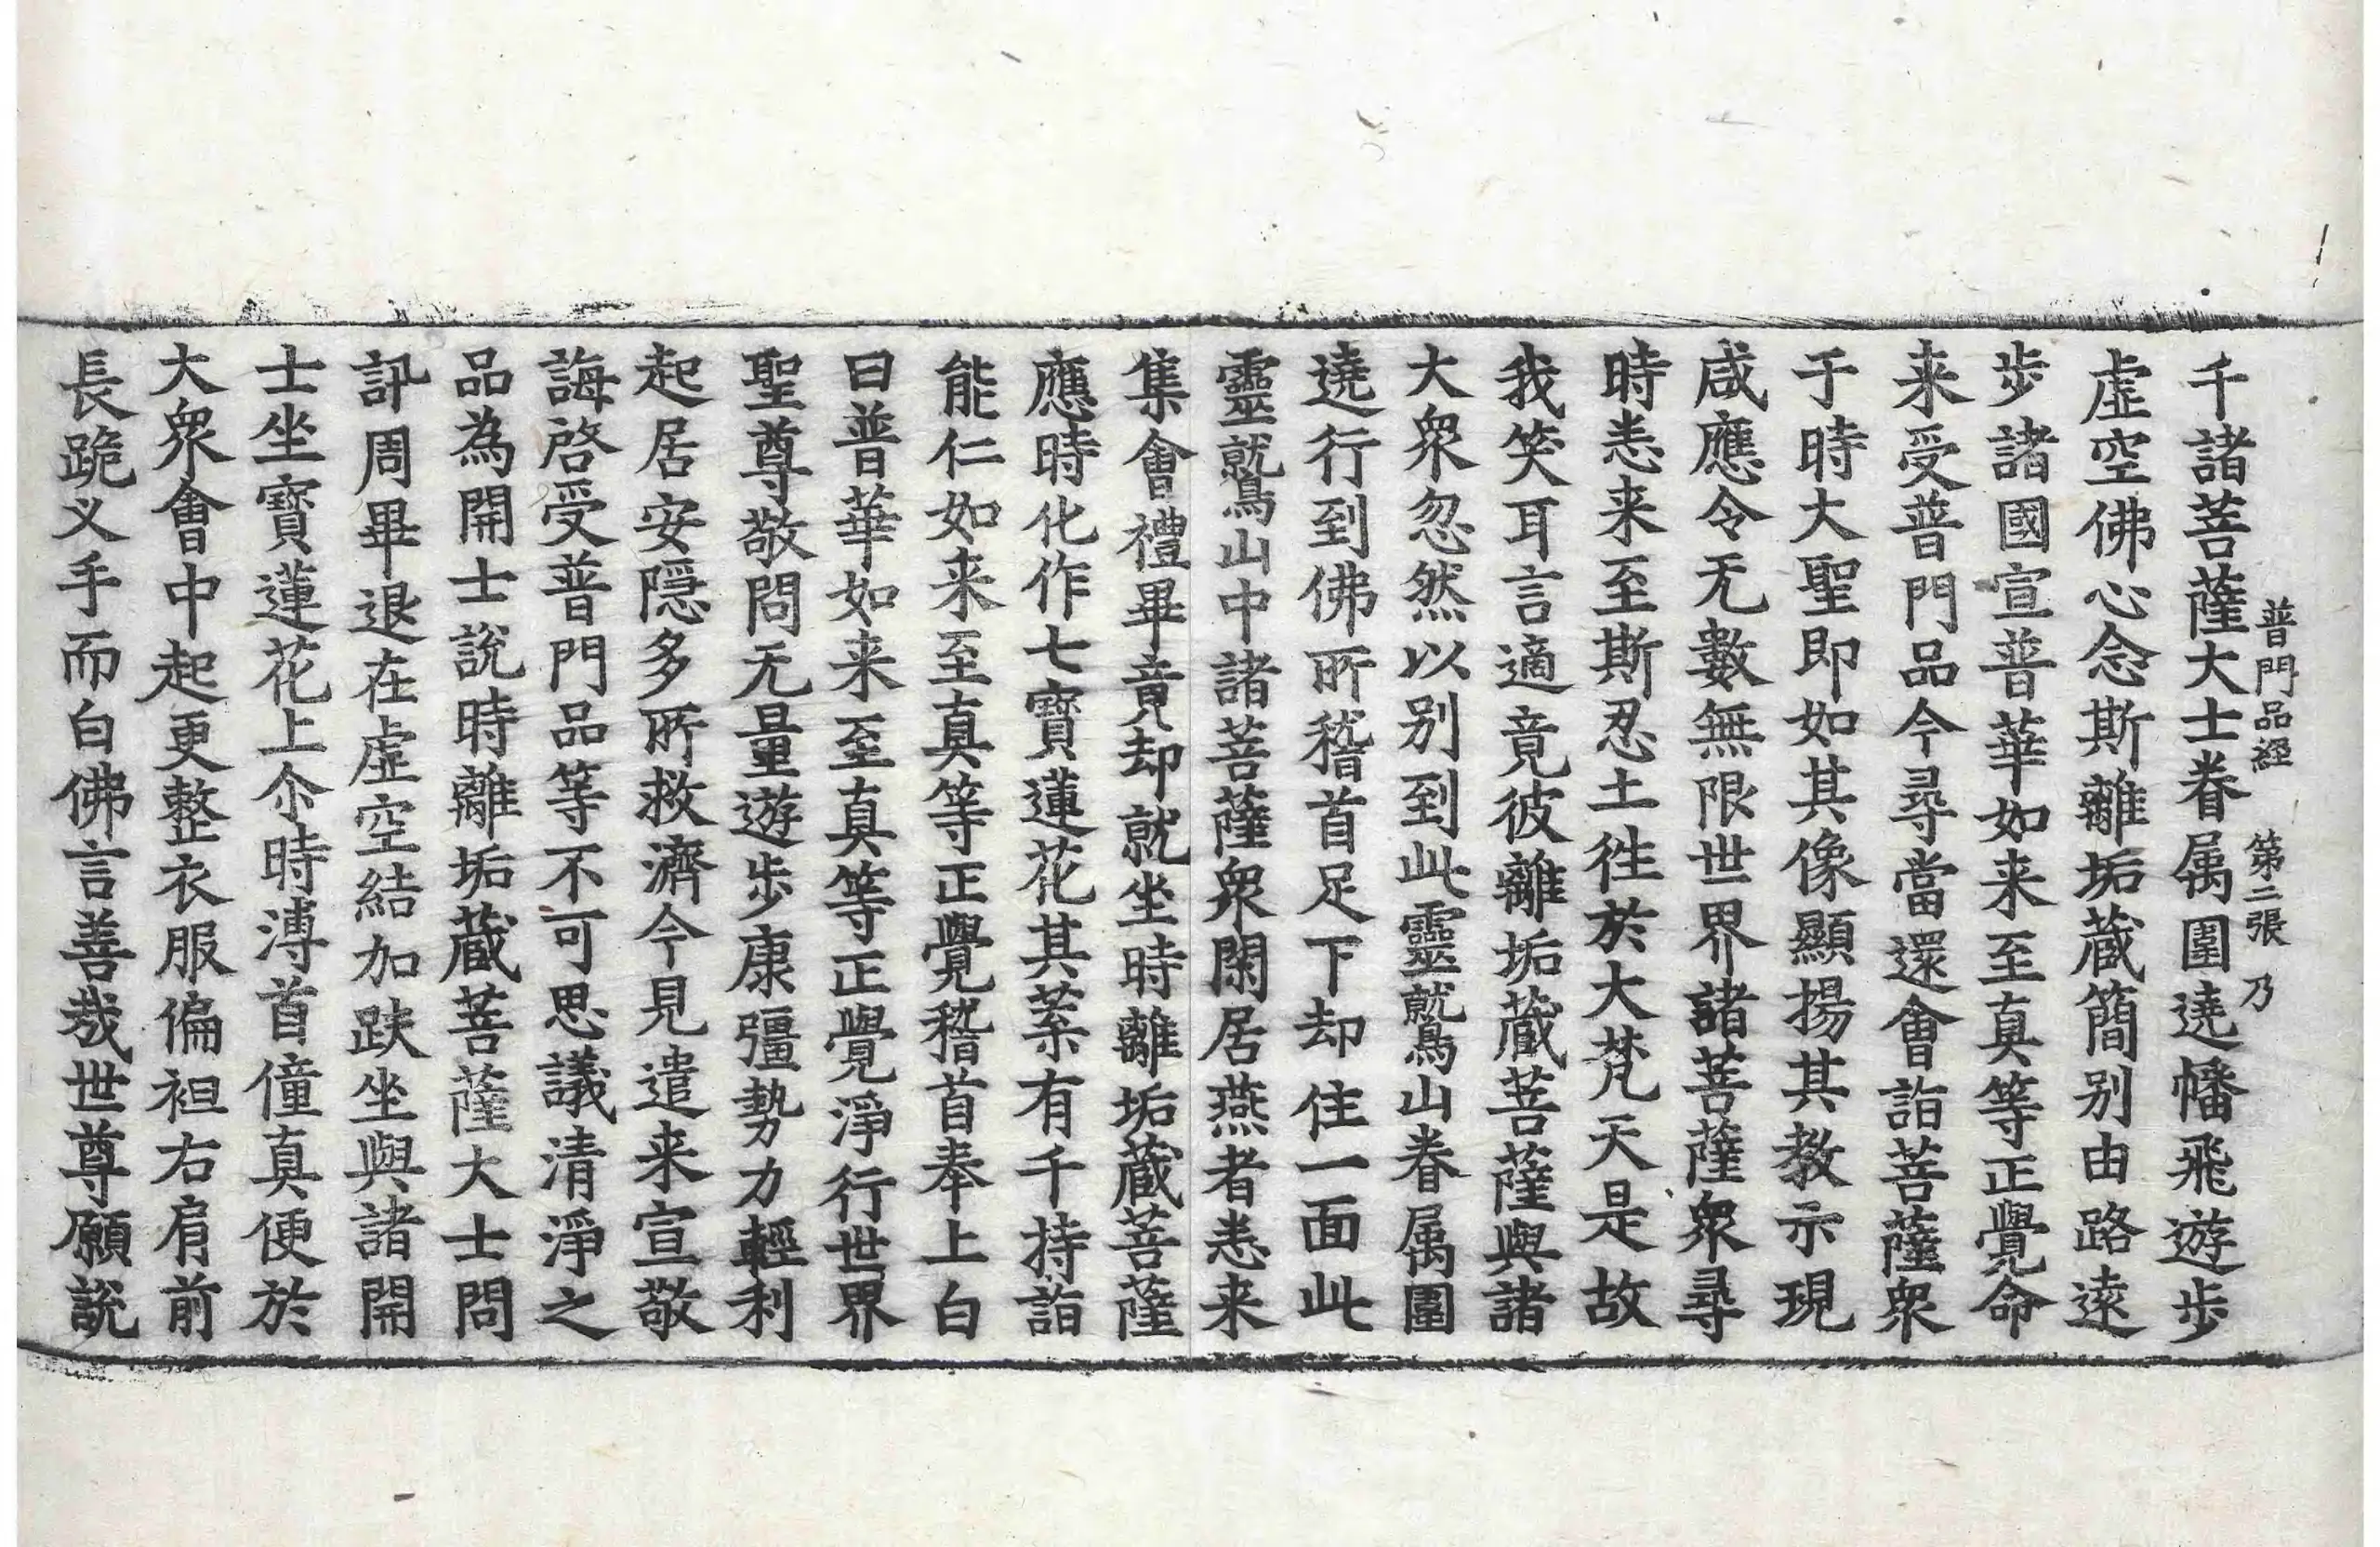 普門品經　第二張　乃
千諸菩薩大士眷属圍遶幡飛遊歩
虛空佛心念斯離垢蔵簡别由路遠
歩諸國宣普華如来至真等正覺命
来受普門品今尋當還會詣菩薩衆
于時大聖即如其像顯揚其教示現
咸應令无數無限世界諸菩薩衆尋
時恚来至斯忍土徃於大梵天是故
我笑耳言適竟彼離垢蔵菩薩與諸
大衆忽然以别到此靈鷲山眷属圍
遶行到佛所稽首足下却住一面此
靈鷲山中諸菩薩衆閑居燕者恚来
集會禮畢竟却就坐時離垢蔵菩薩
應時化作七寶蓮花其葉有千持詣
能仁如来至真等正覺稽首奉上白
曰普華如来至真等正覺淨行世界
聖尊敬問无量遊歩康彊勢力輕利
起居安隱多所救濟今見遣来宣敬
誨啓受普門品等不可思議清淨之
品為開士說時離垢蔵菩薩大士問
訊周畢退在虛空結加趺坐與諸開
士坐寶蓮花上尒時溥首僮真便於
大衆會中起更整衣服偏袒右肩前
長跪义手而白佛言善哉世尊願說